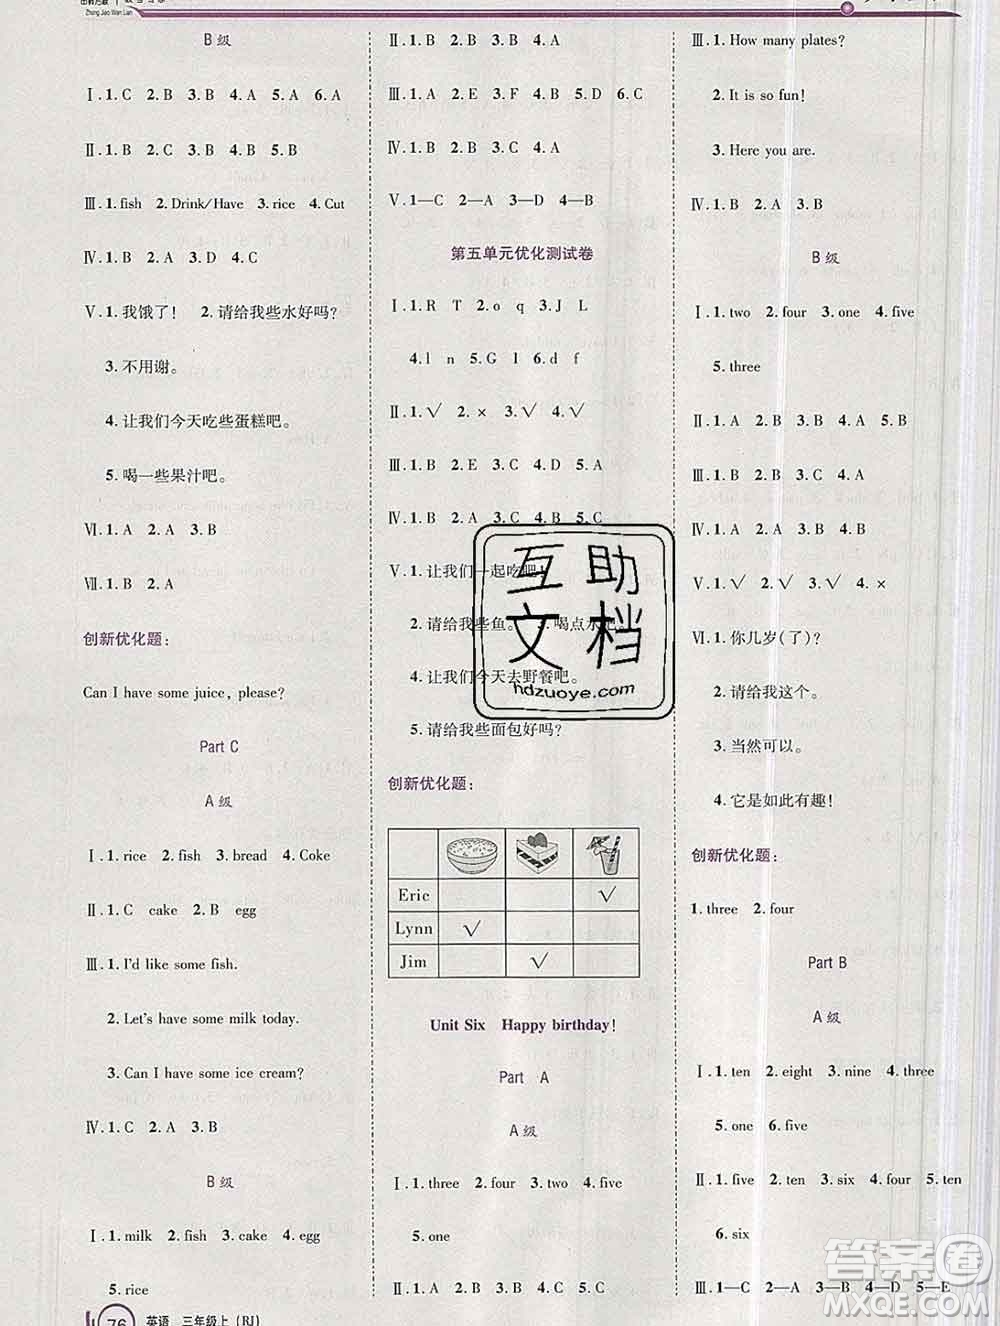 Zhong Jiao Wan Lian
B 级
Ⅰ. 1. C 2. B 3. B 4. A 5. A 6. A
Ⅱ. 1. B 2. B 3. A 4. B 5. B
Ⅲ. 1. fish 2. Drink/Have 3. rice 4. Cut
Ⅳ. 1. B 2. B 3. A 4. B 5. A
Ⅴ. 1. 我饿了! 2. 请给我些水好吗?
3. 不用谢。
4. 让我们今天吃些蛋糕吧。
5. 喝一些果汁吧。
Ⅵ. 1. A 2. A 3. B
Ⅶ. 1. B 2. A
创新优化题:
Can I have some juice, please?
Part C
A 级
Ⅰ. 1. rice 2. fish 3. bread 4. Coke
Ⅱ. 1. C cake 2. B egg
Ⅲ. 1. I'd like some fish.
2. Let's have some milk today.
3. Can I have some ice cream?
Ⅳ. 1. A 2. A 3. B
B 级
Ⅰ. 1. milk 2. fish 3. cake 4. egg
5. rice
76 英语 三年级上(RJ)
Ⅱ. 1. B 2. B 3. B 4. A
Ⅲ. 1. A 2. E 3. F 4. B 5. D 6. C
Ⅳ. 1. A 2. B 3. A 4. B
Ⅴ. 1—C 2—A 3—D 4—B
第五单元优化测试卷
Ⅰ. 1. R T 2. o q 3. J L
4. l n 5. G I 6. d f
Ⅱ. 1. √ 2. × 3. √ 4. √
Ⅲ. 1. B 2. C 3. B 4. D 5. A
Ⅳ. 1. B 2. A 3. C 4. B 5. C
Ⅴ. 1. 让我们一起吃吧!
2. 请给我些鱼。 3. 喝点水吧。
4. 让我们今天去野餐吧。
5. 请给我些面包好吗?
创新优化题:
Eric √
Lynn √
Jim √
Unit Six Happy birthday!
Part A
A 级
Ⅰ. 1. three 2. four 3. two 4. five
5. one
Ⅱ. 1. A 2. B 3. A 4. B 5. B
Ⅲ. 1. How many plates?
2. It is so fun!
3. Here you are.
Ⅳ. 1. B 2. A 3. B
B 级
Ⅰ. 1. two 2. four 3. one 4. five
5. three
Ⅱ. 1. A 2. B 3. B 4. A 5. B
Ⅲ. 1. B 2. A 3. B 4. A 5. B
Ⅳ. 1. B 2. A 3. A 4. B
Ⅴ. 1. √ 2. √ 3. √ 4. ×
Ⅵ. 1. 你几岁(了)?
2. 请给我这个。
3. 当然可以。
4. 它是如此有趣!
创新优化题:
1. three 2. four
Part B
A 级
Ⅰ. 1. ten 2. eight 3. nine 4. three
5. one 6. five
Ⅱ. 1. five 2. ten 3. six 4. four 5. ten
6. six
Ⅲ. 1—C 2—A 3—B 4—D 5—E
互助
文档
hdzuoye.com
答案圈
MXQE.COM